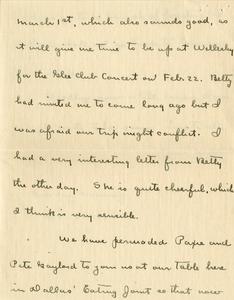 March 1st, which also sounds good, as
it will give me time to be up at Wellesley
for the Glee Club Concert on Feb. 22. Betty
had invited me to come long ago but I
was afraid our trip might conflict. I
had a very interesting letter from Betty
the other day. She is quite cheerful, which
I think is very sensible.
We have persuaded Paxie and
Pete Gaylord to join us at our table here
in Dallas' Eating Joint so that now